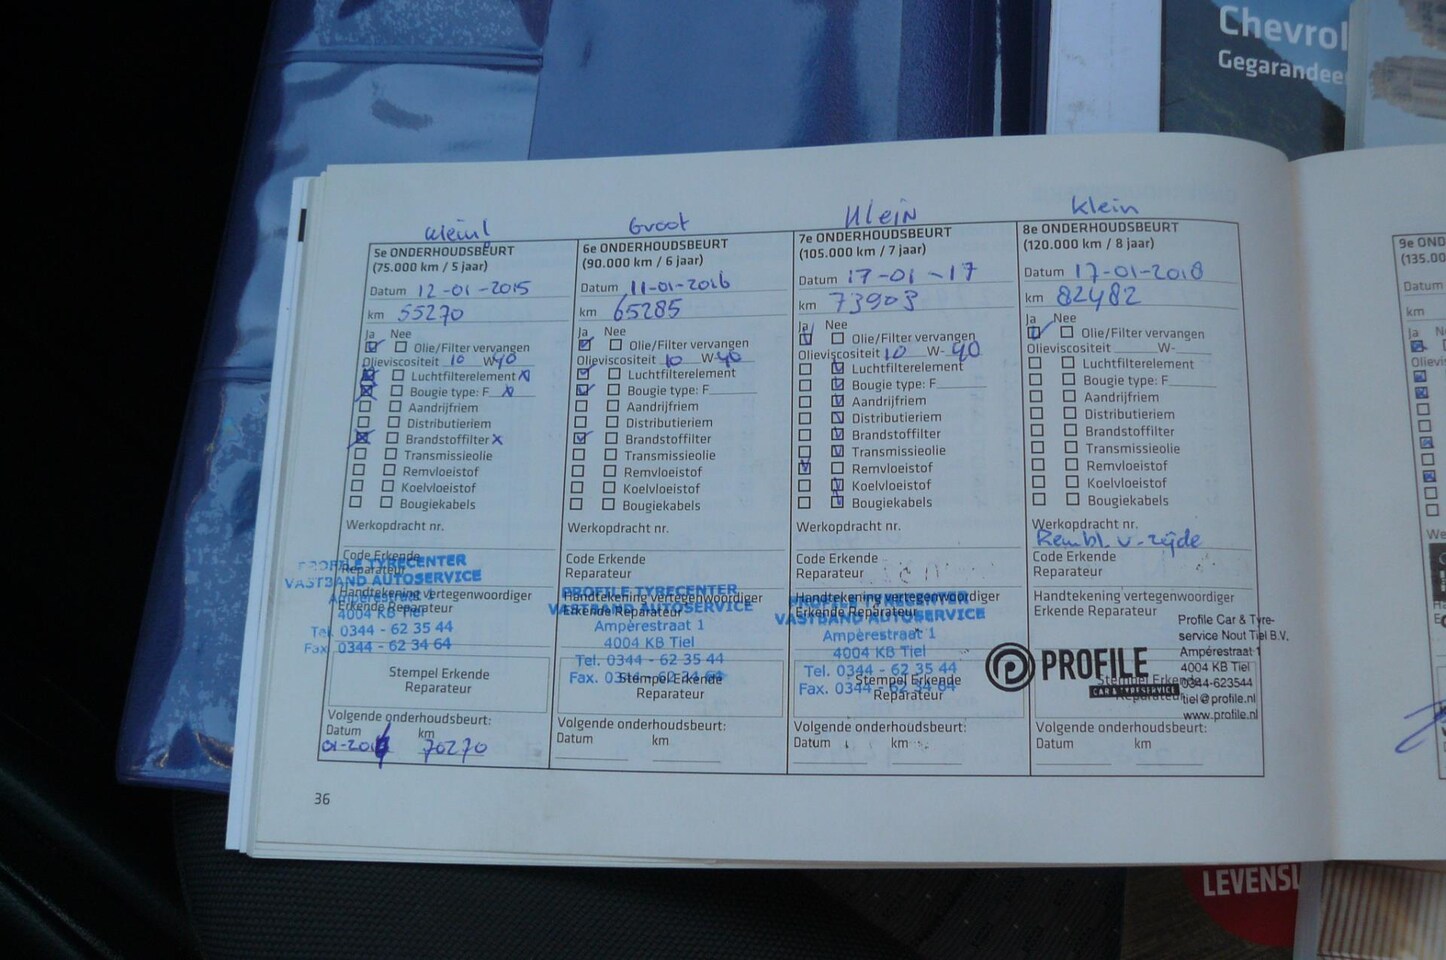 Chevrol
Gegarandeer
klein
5e ONDERHOUDSBEURT
(75.000 km / 5 jaar)
Datum 12-01-2015
km 55270
Ja Nee
Olie/Filter vervangen
Olieviscositeit 10 W-40
Luchtfilterelement x
Bougie type: F x
Aandrijfriem
Distributieriem
Brandstoffilter x
Transmissieolie
Remvloeistof
Koelvloeistof
Bougiekabels
Werkopdracht nr.
Code Erkende
Reparateur
PROFILE TYRECENTER
VASTBAND AUTOSERVICE
Ampèrestraat 1
4004 KB Tiel
Tel. 0344 - 62 35 44
Fax. 0344 - 62 34 64
Handtekening vertegenwoordiger
Erkende Reparateur
Stempel Erkende
Reparateur
Volgende onderhoudsbeurt:
Datum km
70270
Groot
6e ONDERHOUDSBEURT
(90.000 km / 6 jaar)
Datum 11-01-2016
km 65285
Ja Nee
Olie/Filter vervangen
Olieviscositeit 10 W-40
Luchtfilterelement
Bougie type: F
Aandrijfriem
Distributieriem
Brandstoffilter
Transmissieolie
Remvloeistof
Koelvloeistof
Bougiekabels
Werkopdracht nr.
Code Erkende
Reparateur
Handtekening vertegenwoordiger
Erkende Reparateur
PROFILE TYRECENTER
VASTBAND AUTOSERVICE
Ampèrestraat 1
4004 KB Tiel
Tel. 0344 - 62 35 44
Fax. 0344 - 62 34 64
Stempel Erkende
Reparateur
Volgende onderhoudsbeurt:
Datum km
Klein
7e ONDERHOUDSBEURT
(105.000 km / 7 jaar)
Datum 17-01-17
km 73903
Ja Nee
Olie/Filter vervangen
Olieviscositeit 10 W-40
Luchtfilterelement
Bougie type: F
Aandrijfriem
Distributieriem
Brandstoffilter
Transmissieolie
Remvloeistof
Koelvloeistof
Bougiekabels
Werkopdracht nr.
Code Erkende
Reparateur
Handtekening vertegenwoordiger
Erkende Reparateur
PROFILE TYRECENTER
VASTBAND AUTOSERVICE
Ampèrestraat 1
4004 KB Tiel
Tel. 0344 - 62 35 44
Fax. 0344 - 62 34 64
Stempel Erkende
Reparateur
Volgende onderhoudsbeurt:
Datum km
klein
8e ONDERHOUDSBEURT
(120.000 km / 8 jaar)
Datum 17-01-2018
km 82482
Ja Nee
Olie/Filter vervangen
Olieviscositeit W-
Luchtfilterelement
Bougie type: F
Aandrijfriem
Distributieriem
Brandstoffilter
Transmissieolie
Remvloeistof
Koelvloeistof
Bougiekabels
Werkopdracht nr.
Rembl. v. zijde
Code Erkende
Reparateur
Handtekening vertegenwoordiger
Erkende Reparateur
PROFILE
CAR & TYRESERVICE
Profile Car & Tyre-
service Nout Tiel B.V.
Ampérestraat 1
4004 KB Tiel
0344-623544
tiel@profile.nl
www.profile.nl
Stempel Erkende
Reparateur
Volgende onderhoudsbeurt:
Datum km
9e OND
(135.00
Datum
km
Ja
Olievis
36
LEVENSL